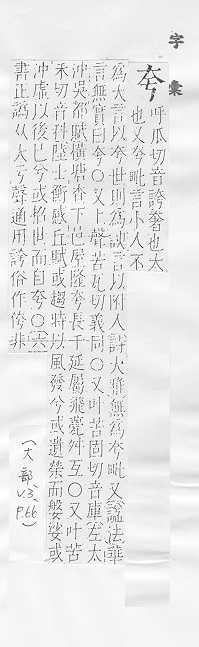 字彙
夸
呼瓜切音誇奢也大
也又夸毗言小人不
為大言以夸世則為諛言以附人詩大雅無為夸毗又諡法華
言無實曰夸○又上聲苦瓦切義同○又叶苦固切音庫左太
沖吳都賦橫塘查下邑屋隆夸長干延屬飛甍舛互○又叶苦
禾切音科陸士衡感丘賦或趨時以風發兮或遺榮而媻娑或
沖虛以後已兮或招世而自夸○六
書正譌从大亏聲通用誇俗作侉非
(大部 v.3, p.66)